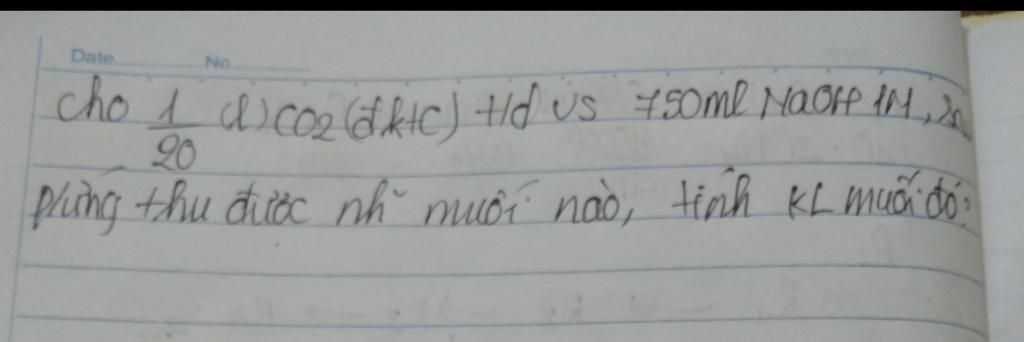 Date No
Cho 1/20 (l) CO2 (đktc) t/d vs 750ml NaOH 1M,
phứng thu được nh~ muối nào, tính KL muối đó?